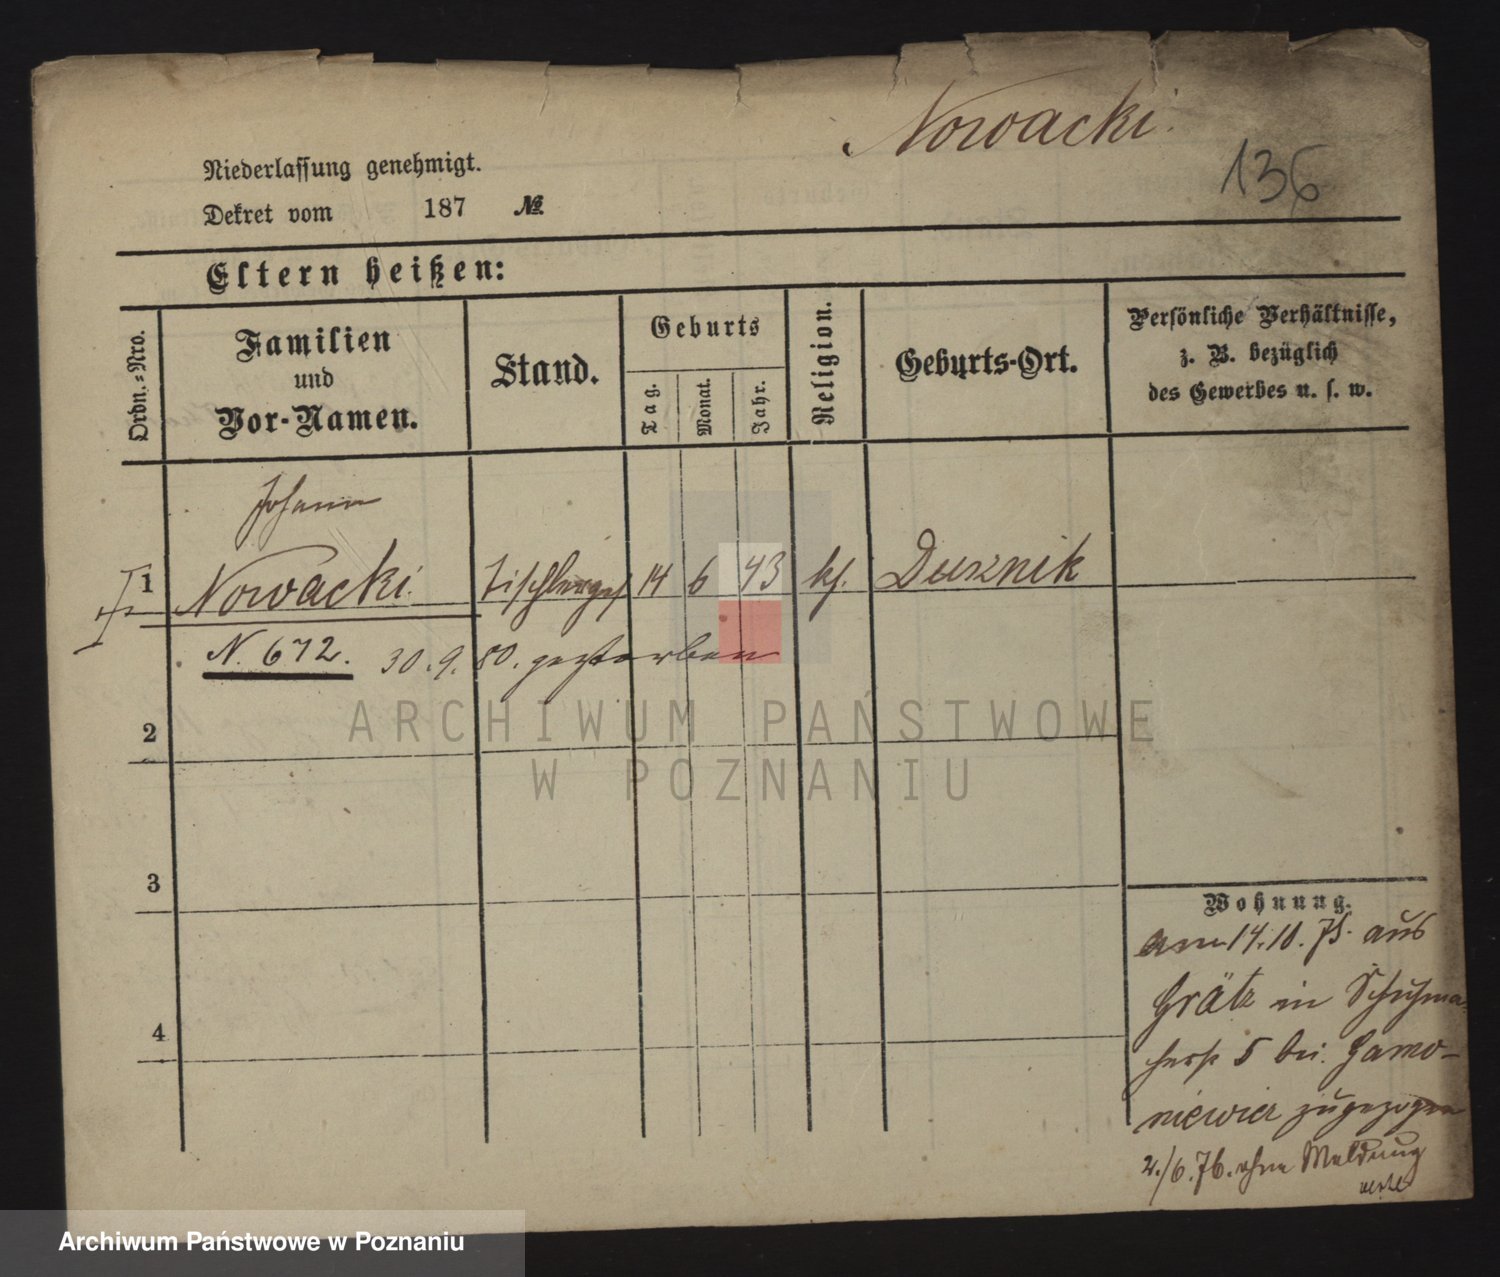 Nowacki.
136
Niederlassung genehmigt.
Dekret vom 187 №
Eltern heißen:
Ordn.=Nro.
Familien
und
Vor-Namen.
Stand.
Geburts
Tag.
Monat.
Jahr.
Religion.
Geburts-Ort.
Persönliche Verhältnisse,
z. B. bezüglich
des Gewerbes u. s. w.
Johann
1 Nowacki. Tischlerges 14 6 43 kf. Dusznik
N. 672. 30. 9. 80. gestorben
2
3
4
Wohnung.
am 14.10.75. aus
Grätz in Schuhma
5 bei
niewicz zugezogen
2./6.76. ohne Meldung
ARCHIWUM PAŃSTWOWE
W POZNANIU
Archiwum Państwowe w Poznaniu